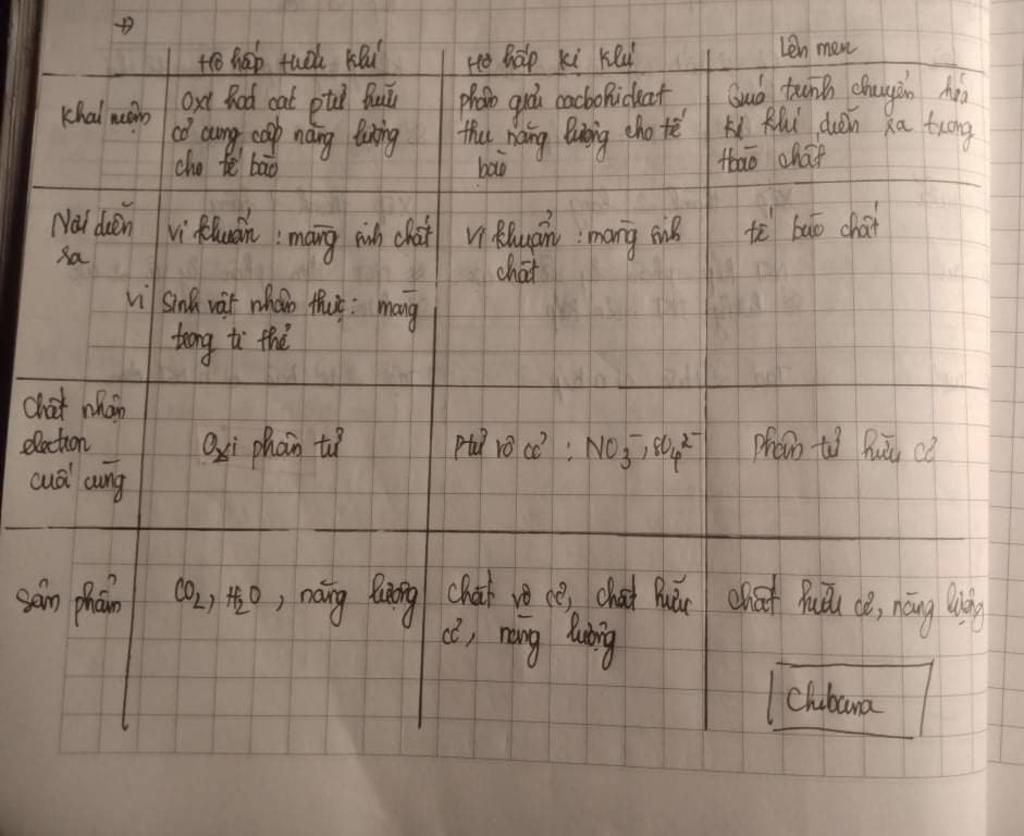 Hô hấp hiếu khí
Hô hấp kị khí
Lên men
Khái niệm
Oxi hoá các ptử hữu
cơ cung cấp năng lượng
cho tế bào
phân giải cacbohiđrat
thu năng lượng cho tế
bào
Quá trình chuyển hóa
kị khí diễn ra trong
tbào chất
Nơi diễn
ra
Vi khuẩn : màng sinh chất
Vi
Sinh vật nhân thực : màng
trong ti thể
Vi khuẩn : màng sinh
chất
tế bào chất
Chất nhận
electron
cuối cùng
Oxi phân tử
Ptử vô cơ : NO₃⁻, SO₄²⁻
Phân tử hữu cơ
Sản phẩm
CO₂, H₂O, năng lượng
chất vô cơ, chất hữu
cơ, năng lượng
chất hữu cơ, năng lượng
Chibana